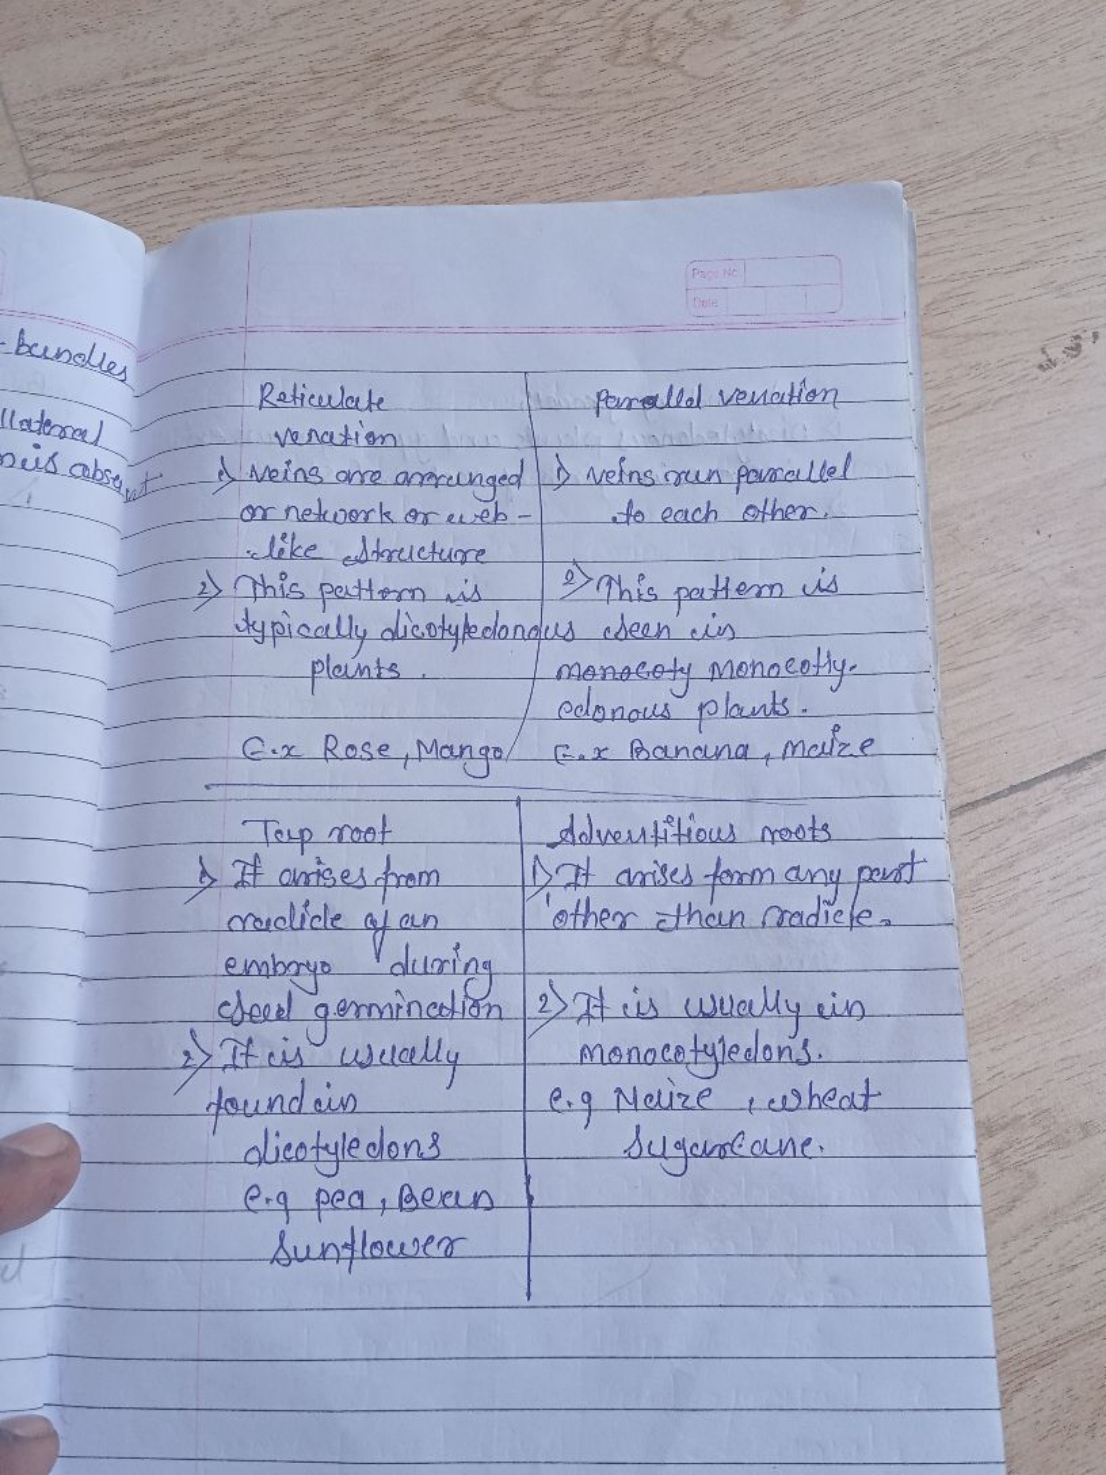 bundles
llateral
Page No.
Date
Reticulate
venation
Parallel venation
1) Veins are arranged
or network or web-
like structure
1) Veins run parallel
to each other.
2) This pattern is
typically dicotyledonous
plants.
2) This pattern is
seen in
monocoty Monocotly-
edonous plants.
E.x Rose, Mango
E.x Banana, Maize
Tap root
1) It arises from
radicle of an
embryo during
seed germination
2) It is usually
found in
dicotyledons
e.g pea, Bean
Sunflower
Adventitious roots
1) It arises form any part
other than radicle.
2) It is usually in
monocotyledons.
e.g Maize, wheat
Sugarcane.